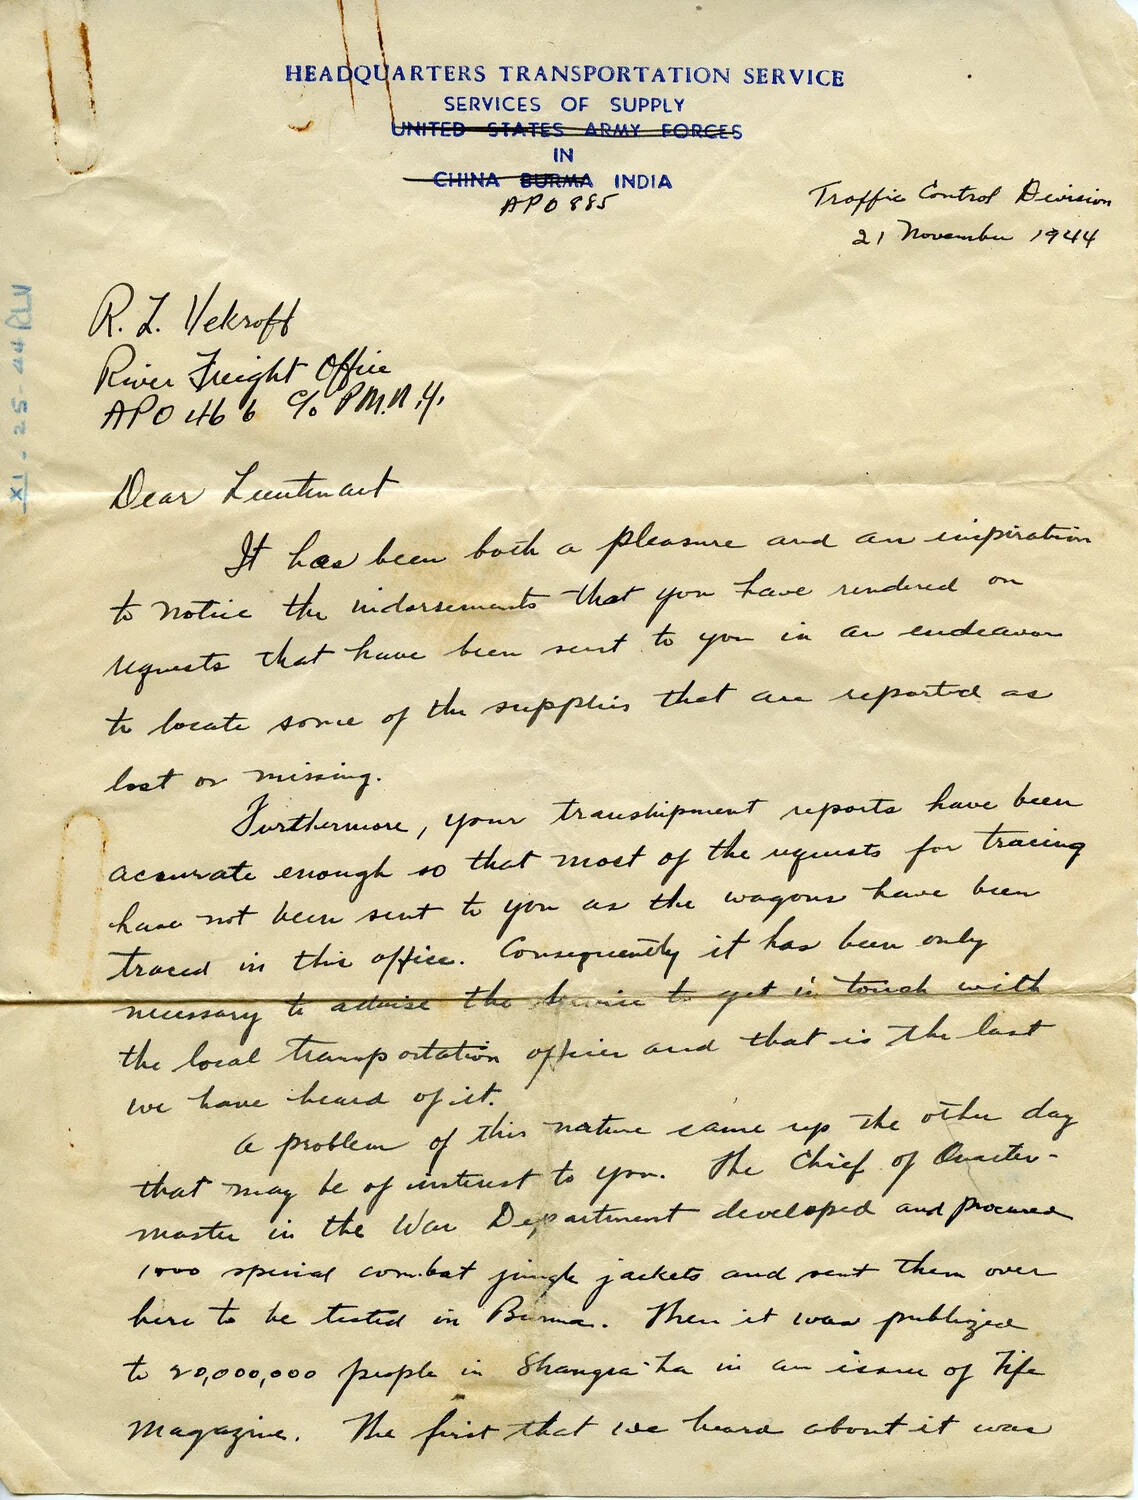 HEADQUARTERS TRANSPORTATION SERVICE
SERVICES OF SUPPLY
UNITED STATES ARMY FORCES
IN
CHINA BURMA INDIA
APO 885
Traffic Control Division
21 November 1944
XI-25-44 RLV
R. L. Vekroff
River Freight Office
APO 466 c/o P.M. N.Y.
Dear Lieutenant
It has been both a pleasure and an inspiration
to notice the indorsements that you have rendered on
requests that have been sent to you in an endeavor
to locate some of the supplies that are reported as
lost or missing.
Furthermore, your transhipment reports have been
accurate enough so that most of the requests for tracing
have not been sent to you as the wagons have been
traced in this office. Consequently it has been only
necessary to advise the Service to get in touch with
the local transportation officer and that is the last
we have heard of it.
A problem of this nature came up the other day
that may be of interest to you. The Chief of Quarter-
master in the War Department developed and procured
1000 special combat jungle jackets and sent them over
here to be tested in Burma. Then it was publized
to 20,000,000 people in Shangra-La in an issue of Life
Magazine. The first that we heard about it was